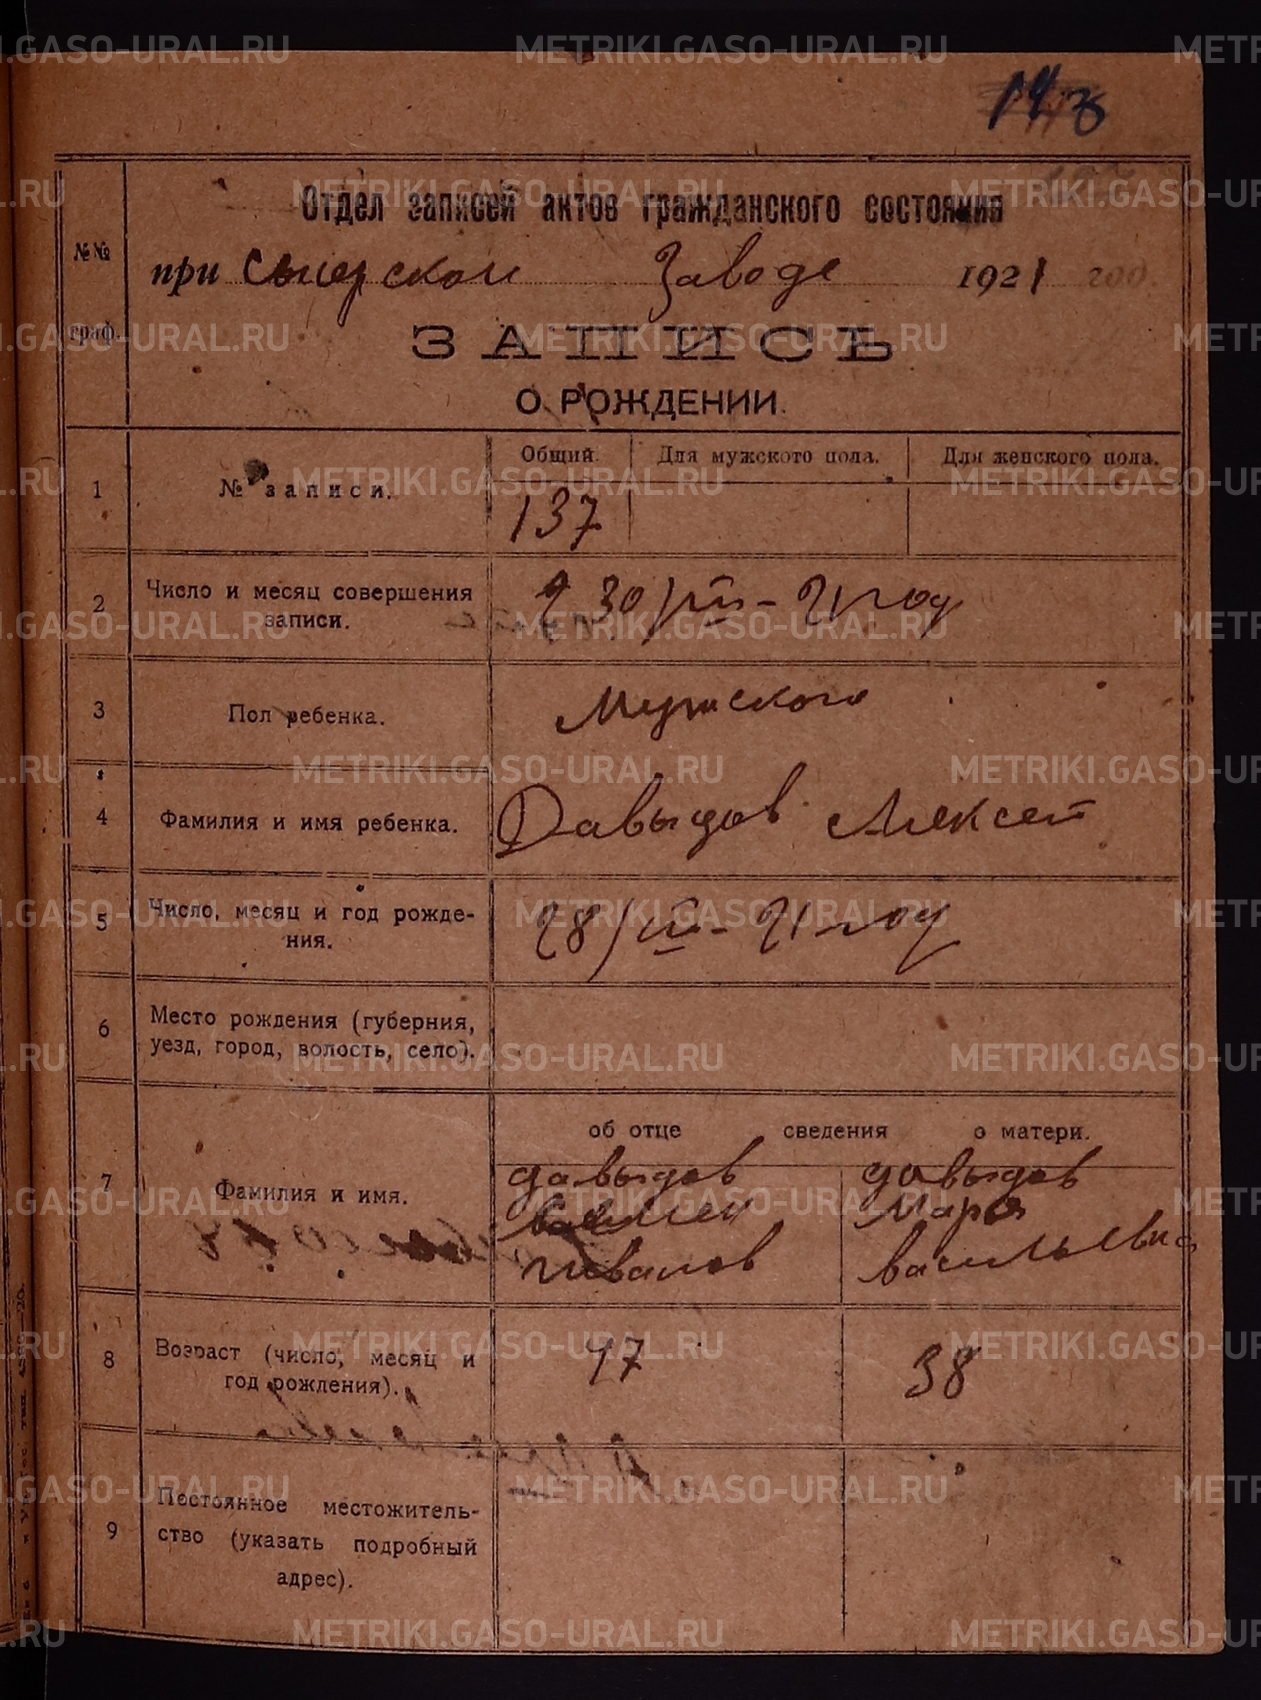 148
Отдел записей актов гражданского состояния
№№ граф.
при Сысерском Заводе 1921 год.
ЗАПИСЬ
О РОЖДЕНИИ.
Общий. Для мужского пола. Для женского пола.
1 № записи. 137
2 Число и месяц совершения записи. 30/III-21 год
3 Пол ребенка. Мужского
4 Фамилия и имя ребенка. Давыдов Алексей
5 Число, месяц и год рожде-
ния. 28/III-21 год
6 Место рождения (губерния,
уезд, город, волость, село).
об отце сведения о матери.
7 Фамилия и имя.
Давыдов Давыдов
Василий Мария
Иванов Васильевна
8 Возраст (число, месяц и
год рождения). 47 38
9 Постоянное местожитель-
ство (указать подробный
адрес).
METRIKI.GASO-URAL.RU